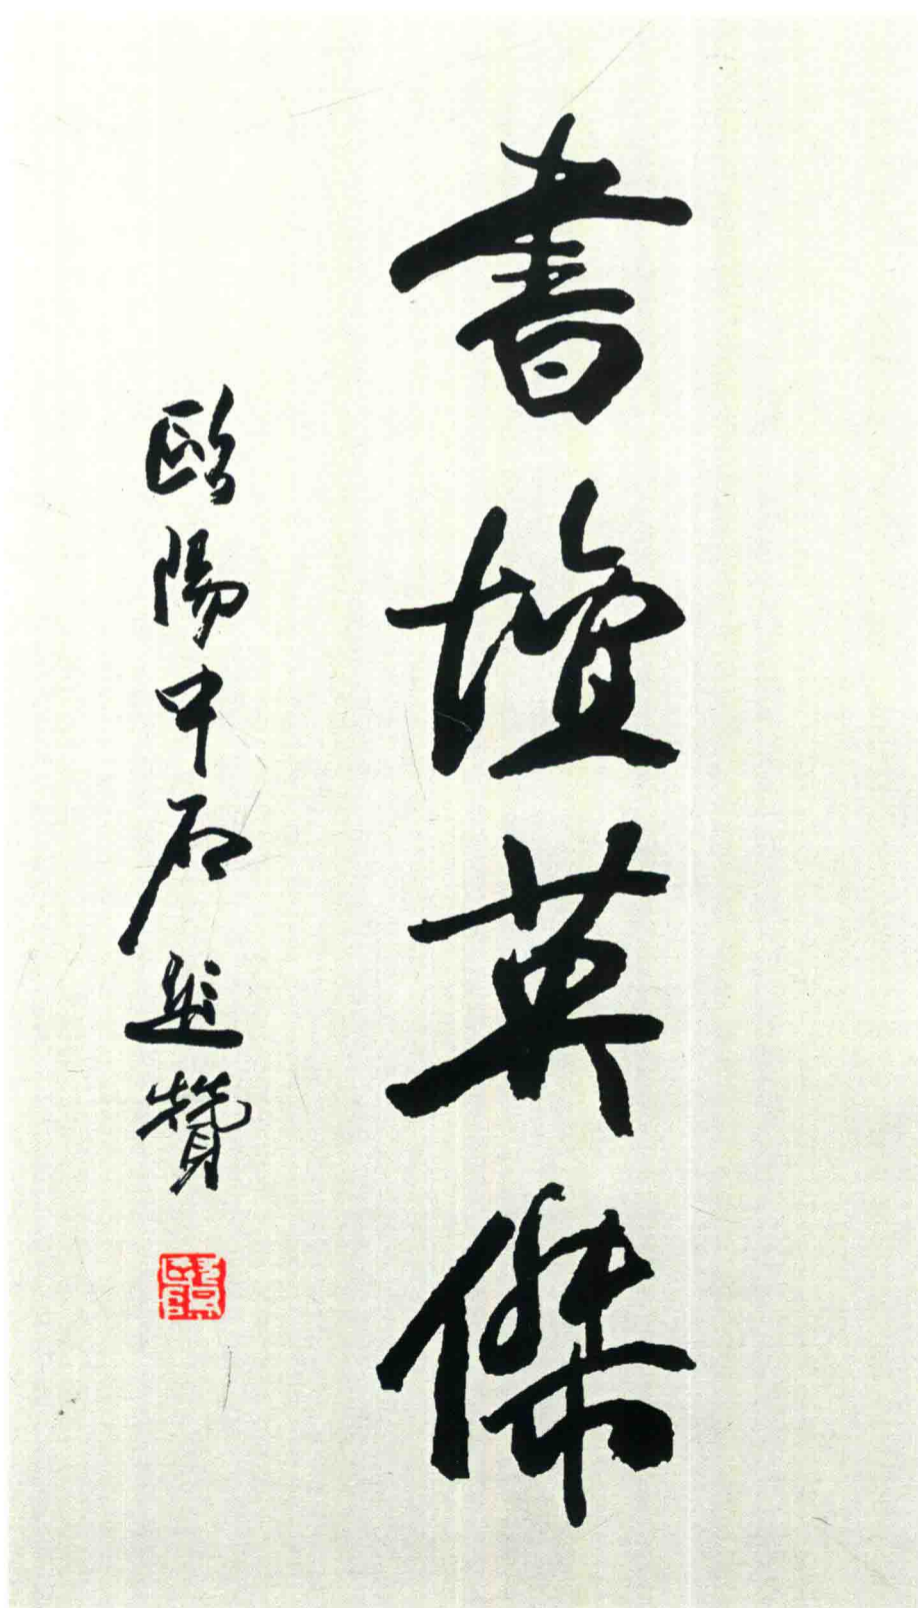 書壇英傑
歐陽中石題贊